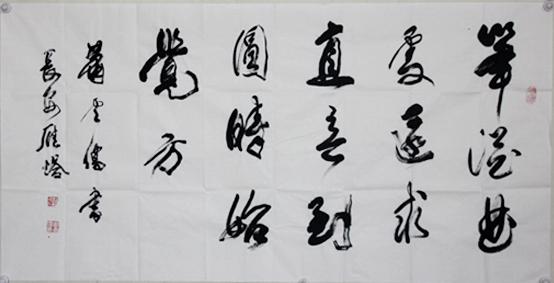 筆從曲
處還求
直意到
圓時始
覺方
蕭雲儒書
長安雁塔